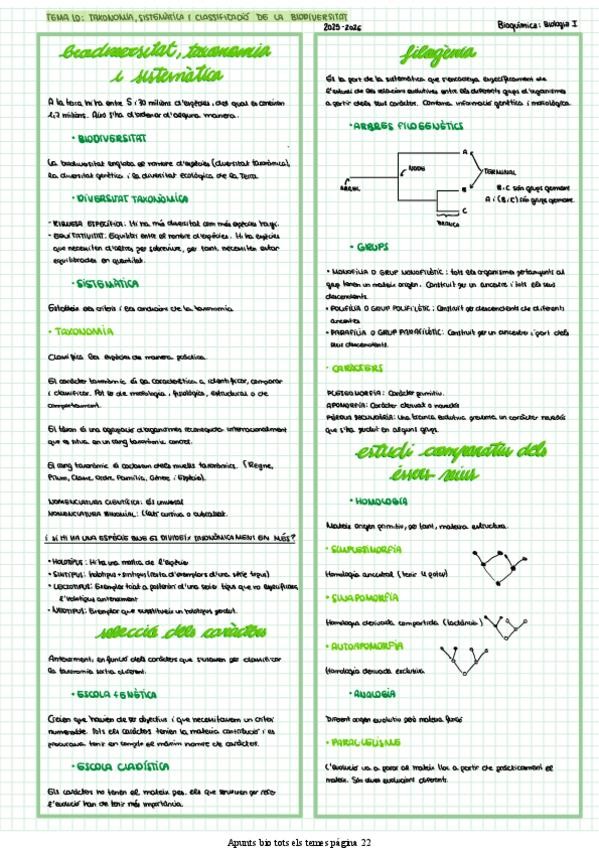 TEMA 10: TAXONOMIA, SISTEMÀTICA I CLASSIFICACIÓ DE LA BIODIVERSITAT
2025-2026
Bioquímica: Biologia I
Biodiversitat, taxonomia
i sistemàtica
A la terra hi ha entre 5 i 30 milions d'espècies, del qual es coneixen
1,7 milions. Així s'ha d'ordenar d'alguna manera.
• BIODIVERSITAT
La biodiversitat engloba el nombre d'espècies (diversitat taxonòmica),
la diversitat genètica i la diversitat ecològica de la Terra.
• DIVERSITAT TAXONÒMICA
- RIQUESA ESPECÍFICA: Hi ha més diversitat com més espècies hi hagi.
- EQUITATIVITAT: Equilibri entre el nombre d'espècies. Hi ha espècies
que necessiten d'altres per sobreviure, per tant, necessiten estar
equilibrades en quantitat.
• SISTEMÀTICA
Estableix els criteris i les condicions de la taxonomia.
• TAXONOMIA
Classifica les espècies de manera pràctica.
El caràcter taxonòmic és la característica a identificar, comparar
i classificar. Pot ser de morfologia, fisiològica, estructural o de
comportament.
El tàxon és una agrupació d'organismes reconeguda internacionalment
que es situa en un rang taxonòmic concret.
El rang taxonòmic és cadascun dels nivells taxonòmics. (Regne,
Fílum, Classe, Ordre, Família, Gènere i Espècie).
NOMENCLATURA CIENTÍFICA: És universal
NOMENCLATURA BINOMIAL: Llatí cursiva o subratllat.
I SI HI HA UNA ESPÈCIE QUE ES DIVIDEIX TAXONÒMICAMENT EN MÉS?
• HOLOTIPUS: Hi ha una mostra de l'espècie
• SINTIPUS: Holotipus + sintipus (resta d'exemplars d'una sèrie tipus)
• LECTOTIPUS: Exemplar triat a posteriori d'una sèrie tipus que no especifiques
l'holotipus anteriorment
• NEOTIPUS: Exemplar que substitueix un holotipus perdut.
selecció dels caràcters
Anteriorment, en funció dels caràcters que s'usaven per classificar
la taxonomia sortia diferent.
• ESCOLA FENÈTICA
Creien que havien de ser objectius i que necessitaven un criteri
numerable. Tots els caràcters tenien la mateixa contribució i es
procurava tenir en compte el màxim nombre de caràcters.
• ESCOLA CLADÍSTICA
Els caràcters no tenen el mateix pes, els que serveixen per
l'evolució han de tenir més importància.
filogènia
És la part de la sistemàtica que s'encarrega específicament de
l'estudi de les relacions evolutives entre els diferents grups d'organismes
a partir dels seus caràcters. Combina informació genètica i morfològica.
• ARBRES FILOGENÈTICS
ARREL
NODE
A
B
C
TERMINAL
BRANCA
B i C són grups germans
A i (B i C) són grups germans.
• GRUPS
• MONOFÍLIA O GRUP MONOFILÈTIC: Tots els organismes pertanyents al
grup tenen un mateix origen. Construït per un ancestre i tots els seus
descendents.
• POLIFÍLIA O GRUP POLIFILÈTIC: Construït per descendents de diferents
ancestres
• PARAFÍLIA O GRUP PARAFILÈTIC: Construït per un ancestre i part dels
seus descendents.
• CARÀCTERS
PLESIOMORFIA: Caràcter primitiu.
APOMORFIA: Caràcter derivat o novedós
que s'ha perdut en algun grup.
estudi comparatiu dels
éssers vius
• HOMOLOGIA
Mateix origen primitiu, per tant, mateixa estructura.
• SIMPLESIOMORFIA
Homologia ancestral (tenir 4 potes)
• SINAPOMORFIA
Homologia derivada compartida (lactància)
• AUTOAPOMORFIA
Homologia derivada exclusiva.
• ANALOGIA
Diferent origen evolutiu però mateixa funció
• PARAL·LELISME
L'evolució va a parar al mateix lloc a partir de pràcticament el
mateix. Són dues evolucions diferents.
Apunts bio tots els temes página 22